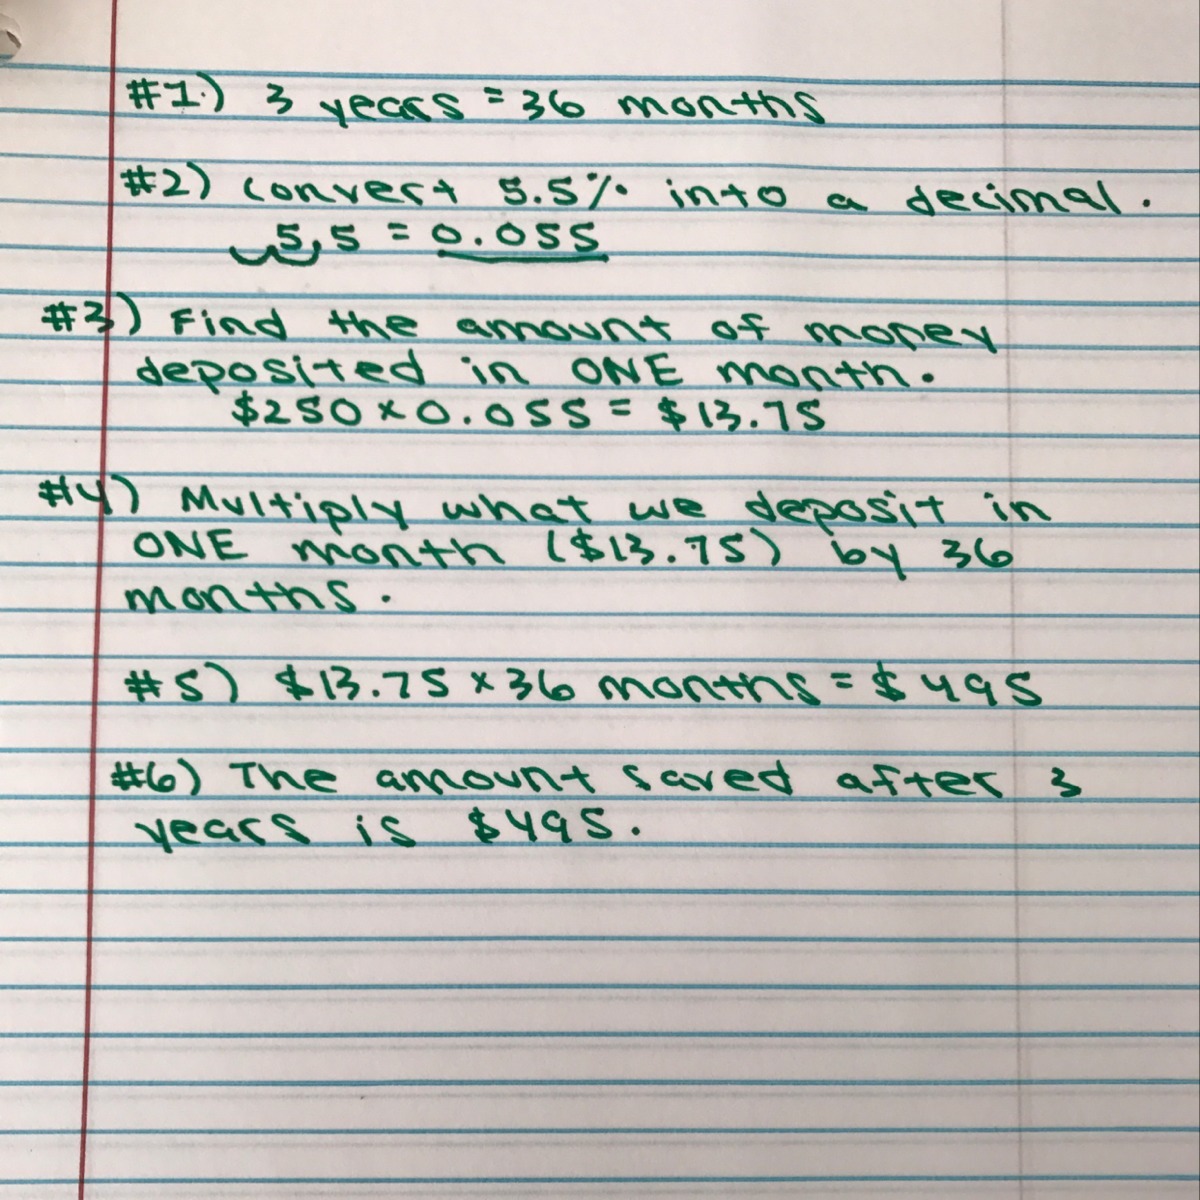 #1.) 3 years = 36 months
#2) convert 5.5% into a decimal.
5,5 = 0.055
#3) Find the amount of money
deposited in ONE month.
$250 x 0.055 = $13.75
#4) Multiply what we deposit in
ONE month ($13.75) by 36
months.
#5) $13.75 x 36 months = $495
#6) The amount saved after 3
years is $495.